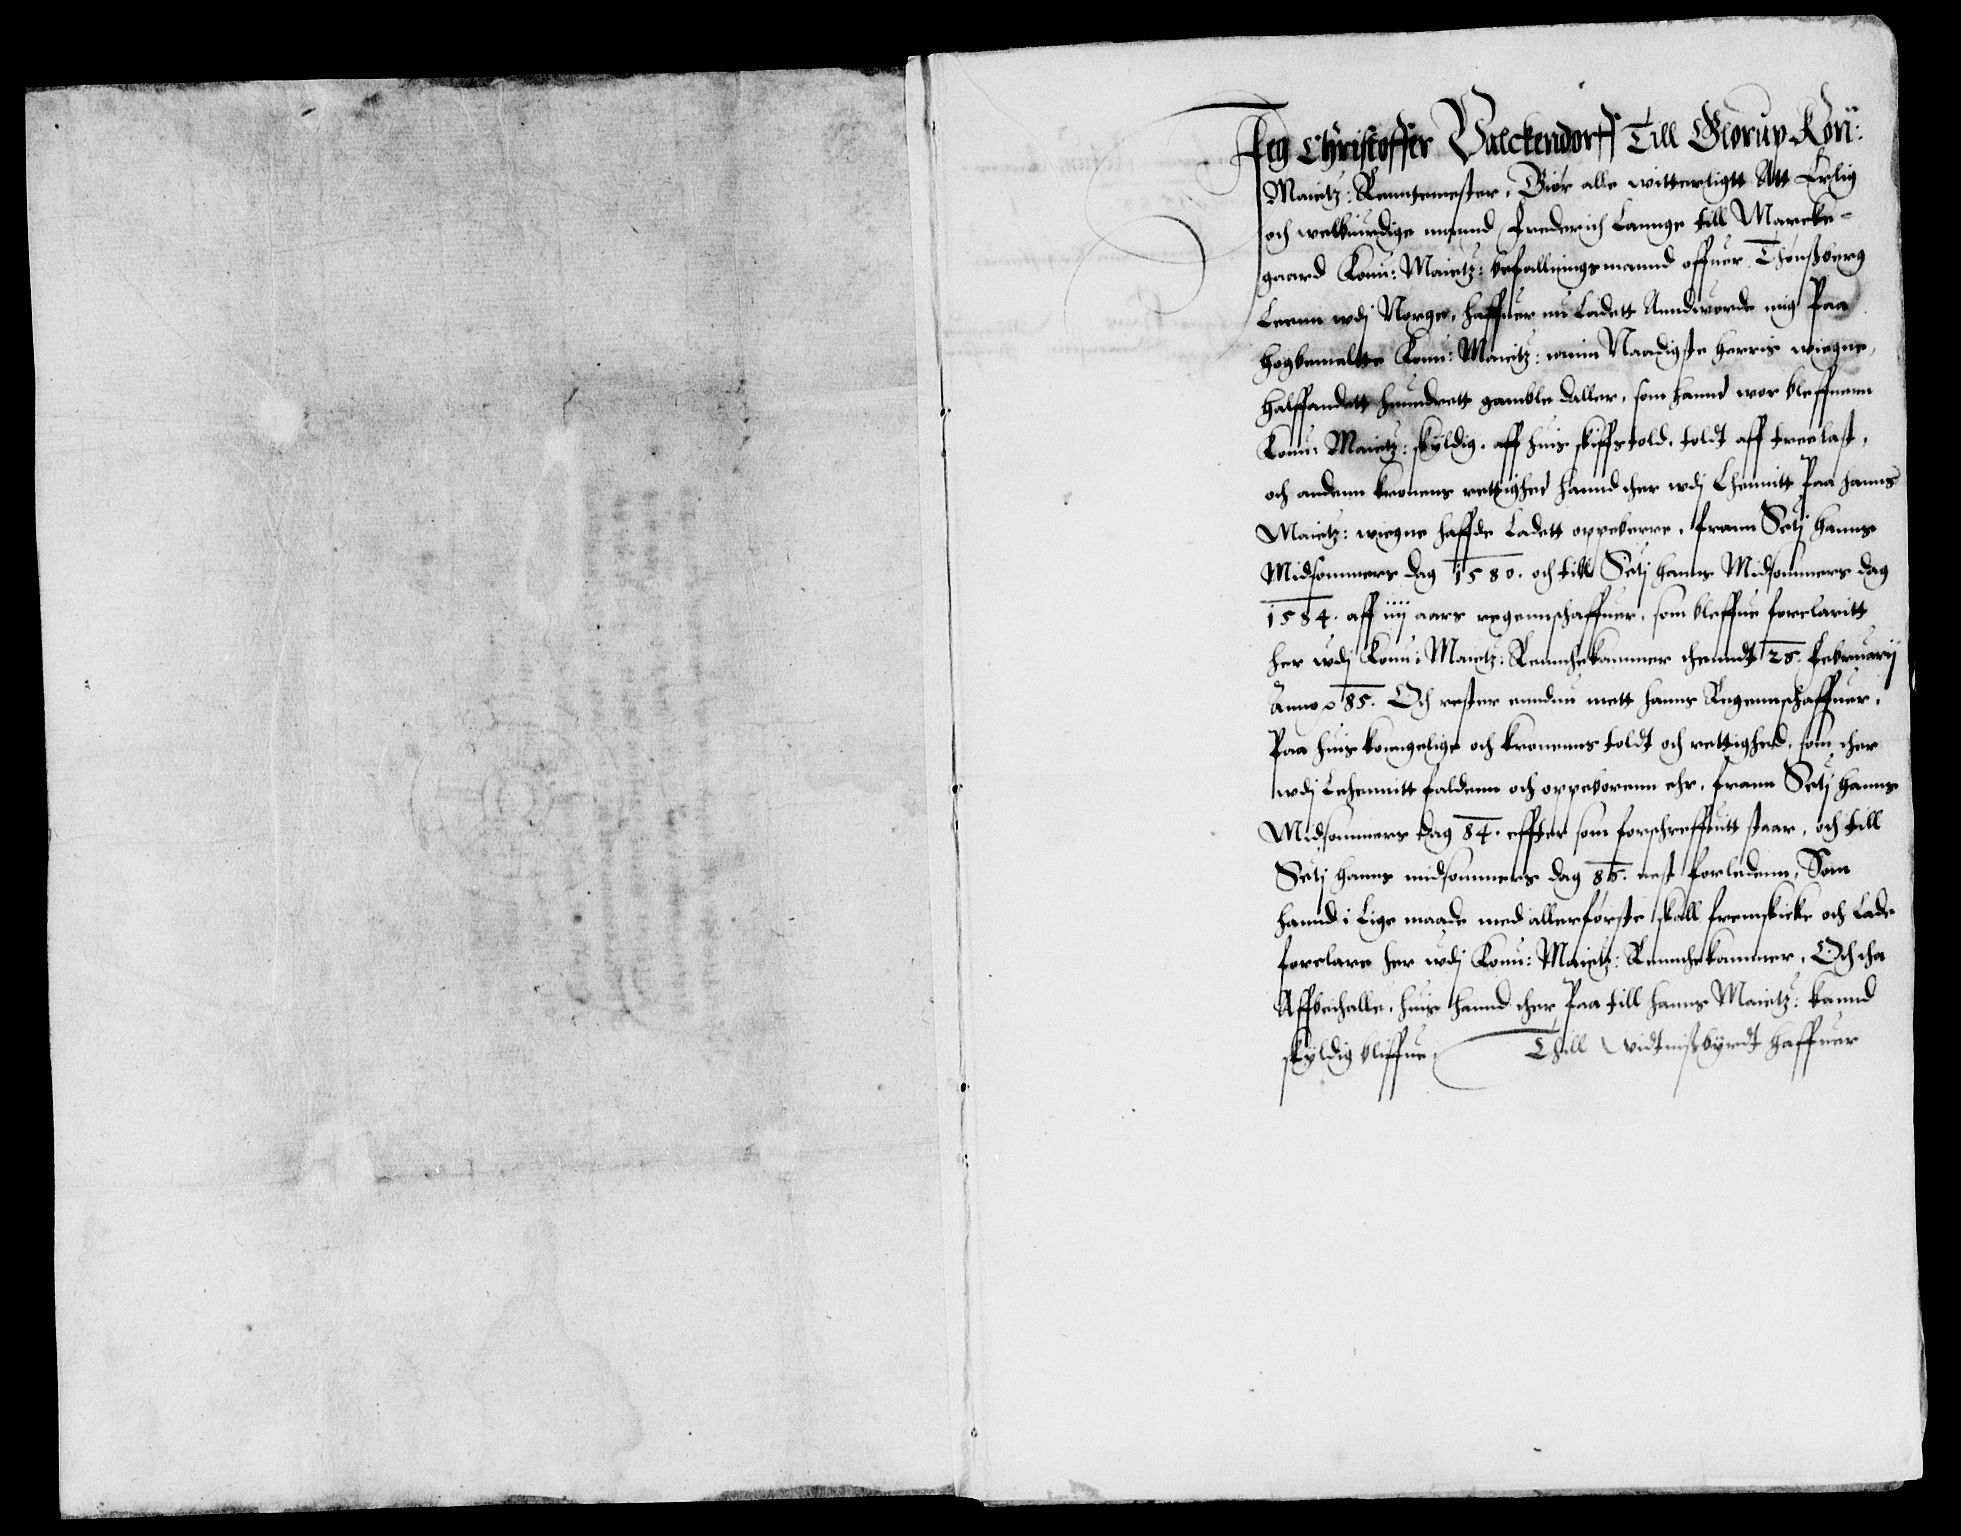 Jeg Christoffer Valckendorff Till Glorup Kon:
Maietz: Renntemester, Giør alle witterligtt Att Erlig
och welbiurdige mannd Frederich Lannge till Marcke-
gaard Konn: Maietz: befallningsmannd offuer Thonßberg
Leenn wdj Norge, haffuer nu Ladett Anndworde mig Paa
høgbemeltte Konn: Maietz: minn Naadigste herris wiegne,
halffandett hunndrett gamble daller, som hannd wor bleffuenn
Konn: Maietz: skyldig, aff huis skiffstold, toldt aff treelast,
och andenn kronens rettighed hannd ther wdj Lhennitt Paa hanns
Maietz: wiegne haffde Ladett oppeberre, frann Sctj Hanns
Midsommers dag 1580. och till Sctj Hanns Midsommers dag
1584. aff iiij aars regennschaffuer, som bleffue forclaritt
her wdj Konn: Maietz: Rennthekammer thenndt 25. Februarij
Anno 85. Och rester enndnu mett hanns Regennschaffuer,
Paa huis konngelige och kronenns toldt och rettighed, som ther
wdj Lehennitt faldenn och oppeborenn ehr, frann Sctj Hanns
Midsommers dag 84. effter som forschreffuitt staar, och till
Sctj Hanns midsommers dag 85. nest forledenn, Som
hannd i Lige maade med allerførste skall fremskicke och Lade
forclare her wdj Konn: Maietz: Rennthekammer, Och tha
Affbethalle, huis hannd ther Paa till hanns Maietz: kannd
skyldig bliffue, Thill Widtnißbyrdt haffuer